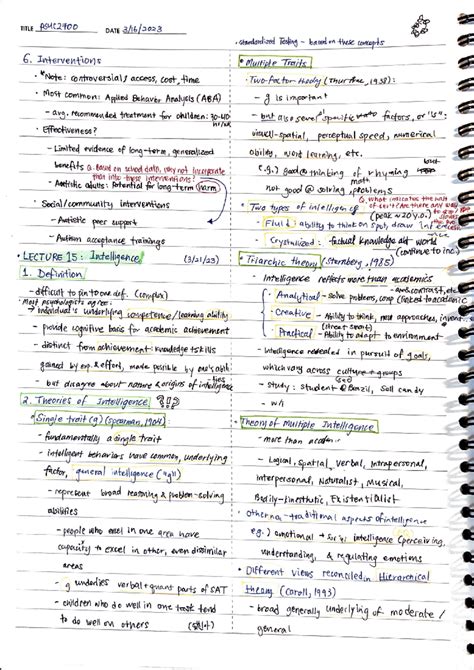 TITLE PSYC2700 DATE 3/16/2023
6. Interventions
*Note: controversial/access, cost, time
• Most common: Applied Behavior Analysis (ABA)
- avg. recommended treatment for children: 30-40
hr/wk
• Effectiveness?
- Limited evidence of long-term, generalized
benefits Q. Based on school data, why not incorporate
than into these interventions?
- Autistic adults: Potential for long-term harm
• Social/community interventions
- Autistic peer support
- Autism acceptance trainings
• LECTURE 15: Intelligence (3/21/23)
1. Definition
- difficult to pin to one def. (complex)
• Most psychologists agree:
→ individual's underlying competence/learning ability
- provide cognitive basis for academic achievement
- distinct from achievement: knowledge & skills
gained by exp. & effort, made possible by one's abilities
- but disagree about nature & origins of intelligence
2. Theories of Intelligence ?!?
• Single trait (g) (Spearman, 1904)
- fundamentally a single trait
- intelligent behaviors have common, underlying
factor, general intelligence ("g")
- represent broad reasoning & problem-solving
abilities
- people who excel in one area have
capacity to excel in other, even dissimilar
areas
- g underlies verbal & quant parts of SAT
- children who do well in one task tend
to do well on others
• Standardized Testing - based on these concepts
• Multiple Traits
• Two-factor theory (Thurstone, 1938):
- g is important
- but also several specific factors, or "s":
visual-spatial, perceptual speed, numerical
ability, word learning, etc.
e.g.) good @ thinking of rhyming but
not good @ solving math problems
• Two types of intelligence
(peak ~20 y.o.)
- Fluid: ability to think on spot, draw inferences
- Crystallized: factual knowledge abt world
(continue to inc.)
• Triarchic theory (Sternberg, 1985)
- Intelligence reflects more than academics
- Analytical - solve problems, comp (linked to academic
- Creative - Ability to think, new approaches, invent
(street smart)
- Practical - Ability to adapt to environment
- intelligence revealed in pursuit of goals,
which vary across culture & groups
- study: student @ Brazil, sell candy
• Theory of Multiple Intelligence
- more than
- Logical, spatial, verbal, Intrapersonal,
Interpersonal, Naturalist, Musical,
Bodily-Kinesthetic, Existentialist
• Other non-traditional aspects of intelligence
e.g.) emotional intelligence (perceiving,
understanding, & regulating emotions
• Different views reconciled in Hierarchical
theory (Caroll, 1993)
- broad generally underlying of moderate /
general